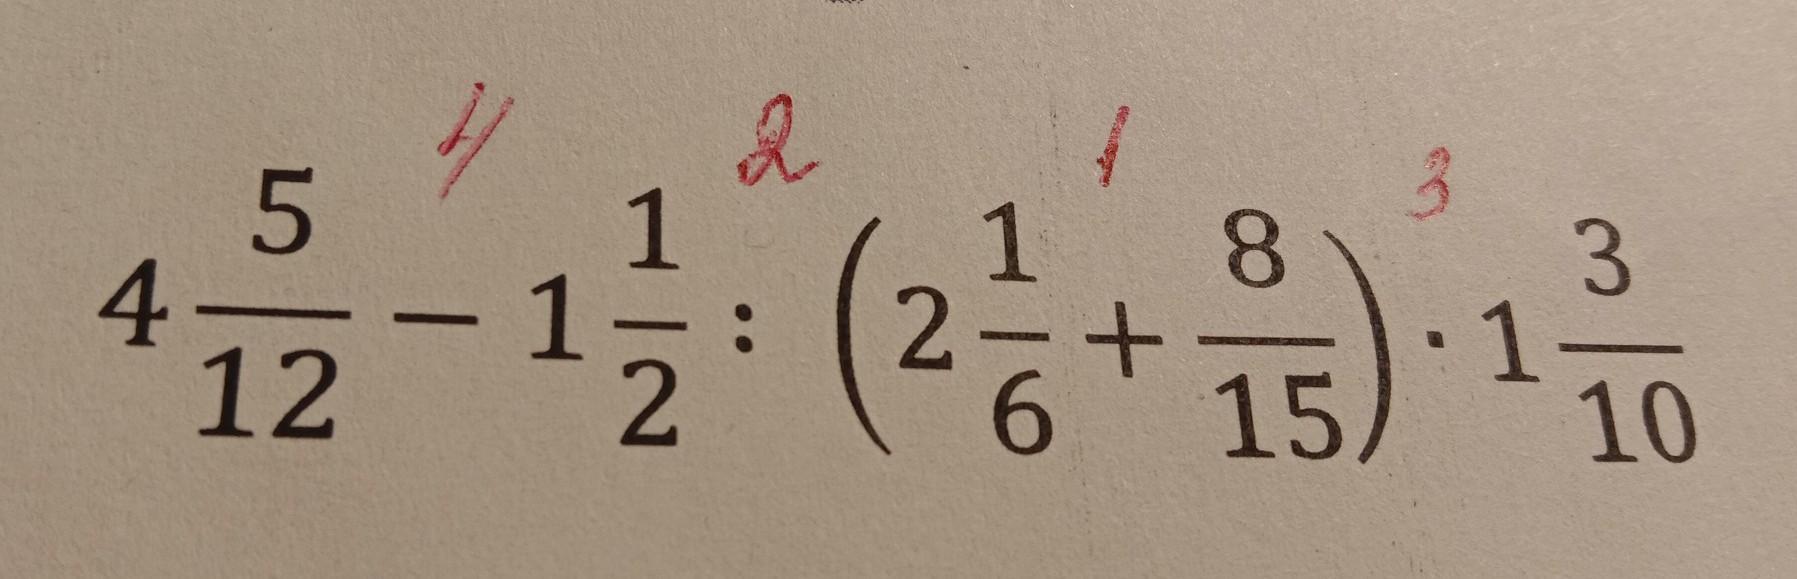 4 2 1 3
4 5/12 − 1 1/2 : (2 1/6 + 8/15) · 1 3/10